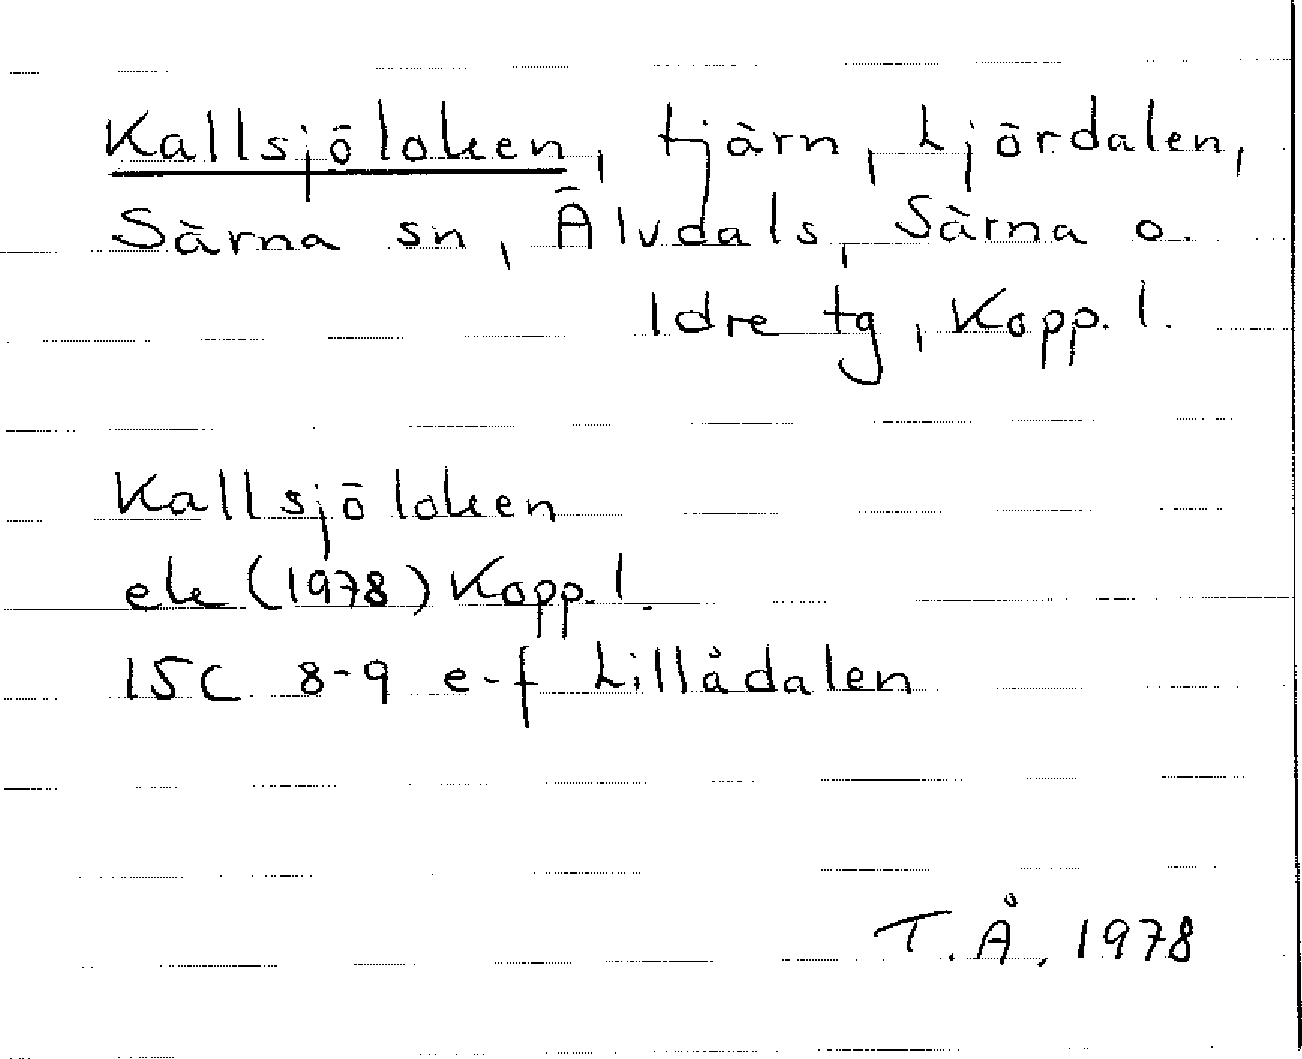 Kallsjöloken, tjärn, Ljördalen,
Särna sn, Älvdals, Särna o.
Idre tg, Kopp. l.
Kallsjöloken
ek (1978) Kopp. l.
15C 8-9 e-f Lillådalen
T. Å, 1978